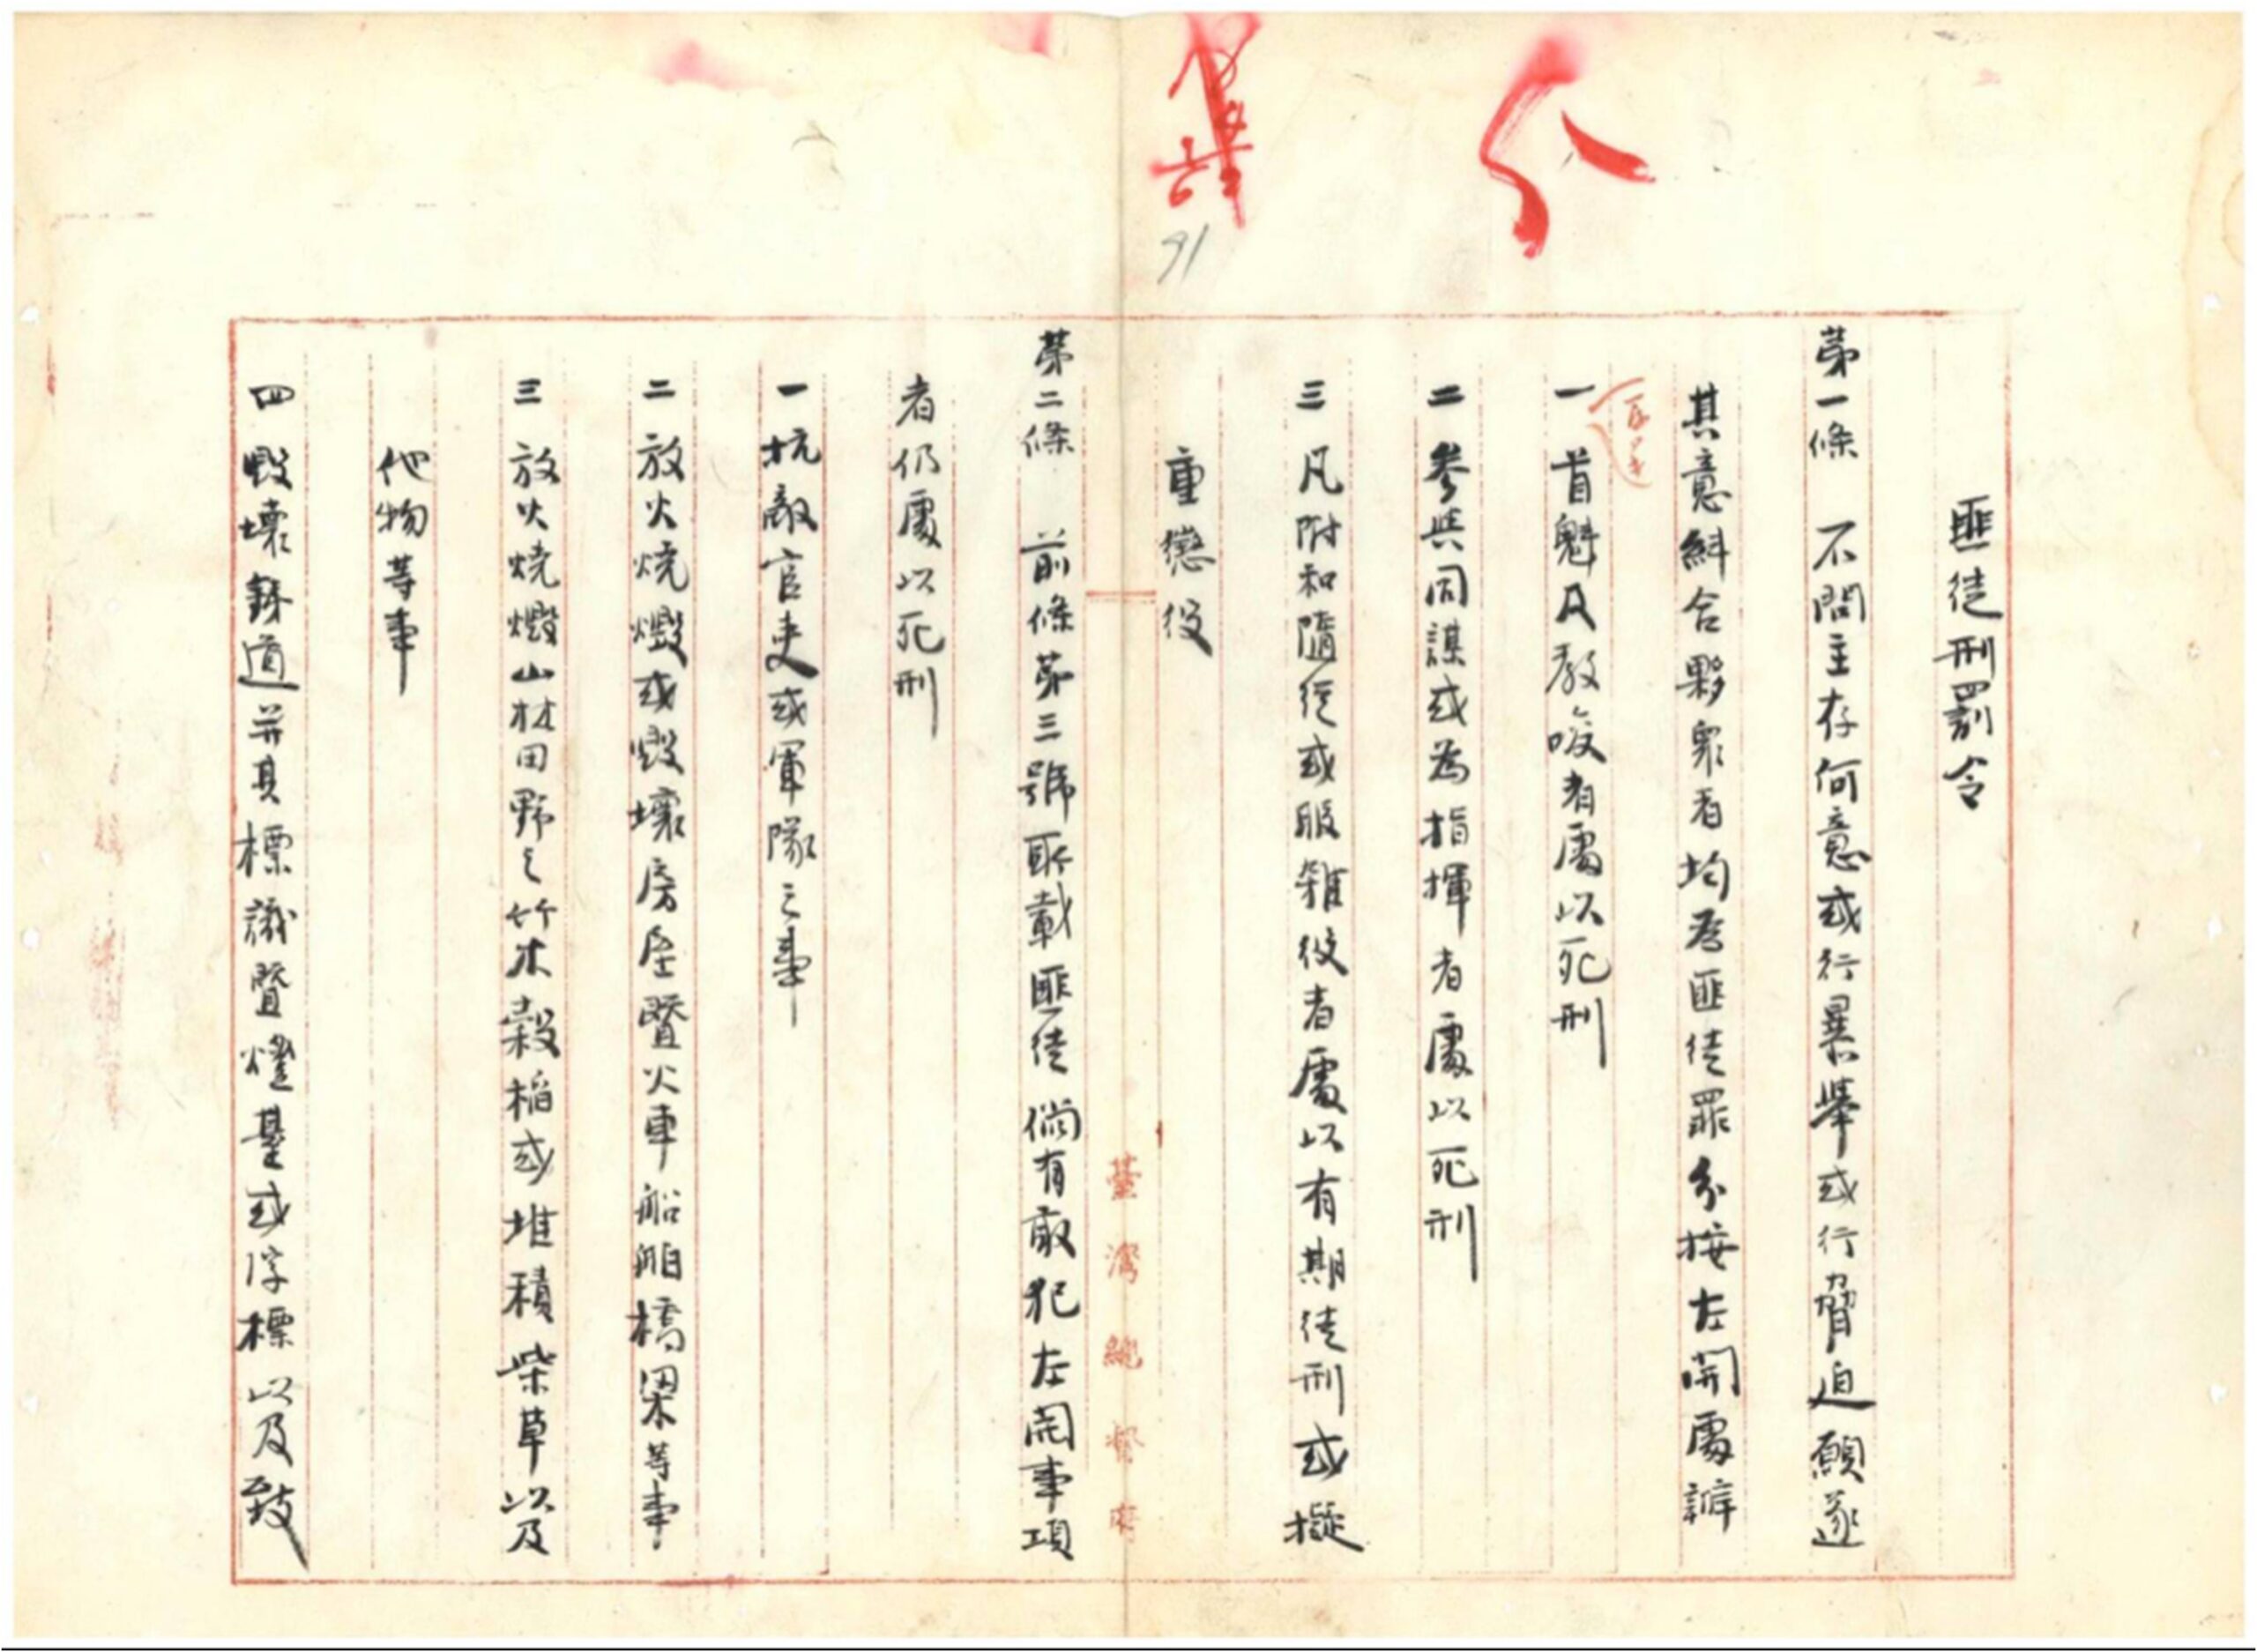 匪徒刑罰令
第一條　不問主存何意或行暴舉或行脅迫願遂
其意糾合夥眾者均為匪徒罪分按左開處辦
一　首魁及教唆者處以死刑
二　參與同謀或為指揮者處以死刑
三　凡附和隨從或服雜役者處以有期徒刑或擬
重懲役
臺灣總督府
第二條　前條第三號所載匪徒倘有敢犯左開事項
者仍處以死刑
一　抗敵官吏或軍隊之事
二　放火燒燬或毀壞房屋暨火車船舶橋梁等事
三　放火燒燬山林田野之竹木穀稻或堆積柴草以及
他物等事
四　毀壞鉄道并其標識暨燈基或浮標以及致
91